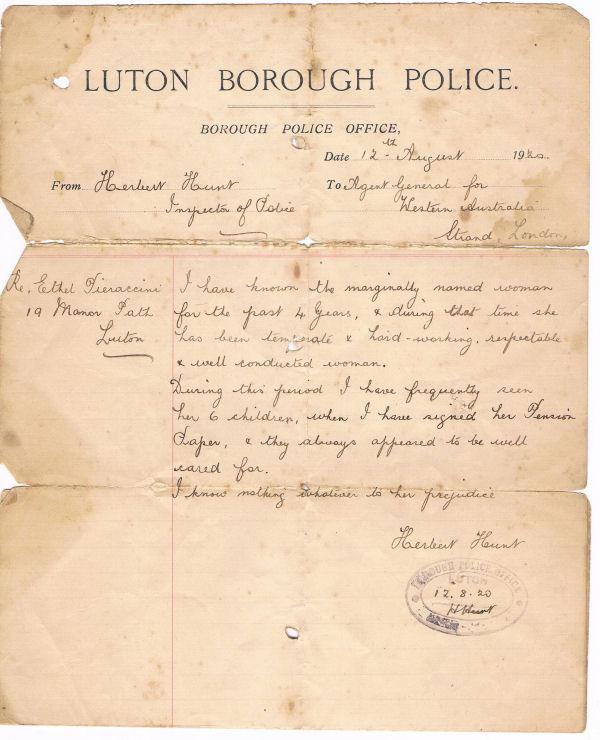 LUTON BOROUGH POLICE.
BOROUGH POLICE OFFICE,
Date 12th August 1920
From Herbert Hunt
Inspector of Police
To Agent General for
Western Australia
Strand, London,
Re, Ethel Pieraccini
19 Manor Path
Luton
I have known the marginally named woman
for the past 4 Years, & during that time she
has been temperate & hard-working, respectable
& well conducted woman.
During this period I have frequently seen
her 6 children, when I have signed her Pension
Paper, & they always appeared to be well
cared for.
I know nothing whatever to her prejudice
Herbert Hunt
BOROUGH POLICE OFFICE
LUTON
12.8.20
H Hunt